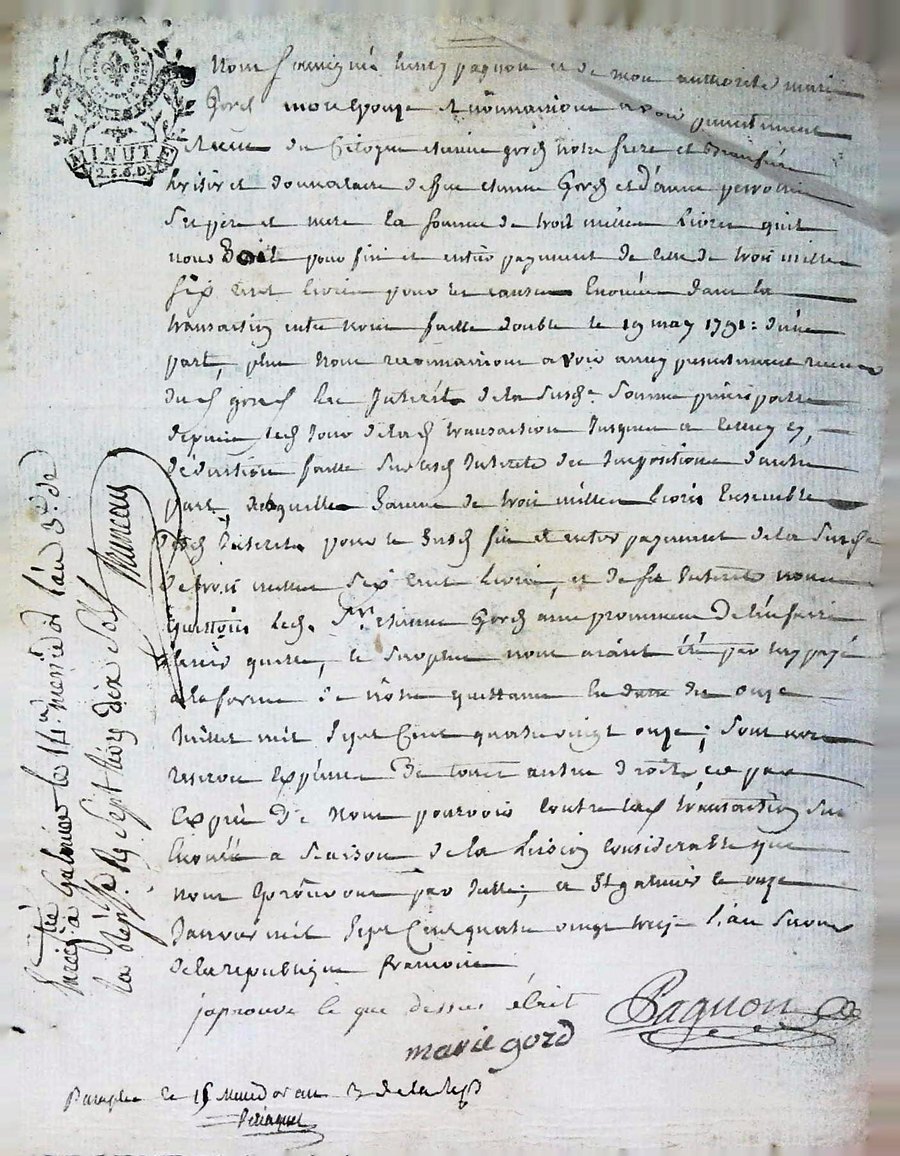 MINUTE
2.S.6.D
Nous soussigné pagnon et de mon authorité marie
Gord mon epouse Reconnaissons avoir presentement
Receu du Citoyen etienne gord notre frere et
heritier et donnataire de feu etienne Gord et d'anne
Ses père et mere la somme de trois milles Livres quil
nous Doit pour fin et entier payement de celle de trois milles
Six Cent livres pour les causes Enoncées dans la
transaction entre Nous faitte double le 19 may 1791: d'une
part, plus Nous reconnaissons avoir aussy presentement receu
dud gord les Interêts de la Susd. Somme principalle
depuis led Jour de lad transaction Jusques a
deduction faitte Sur lesd Interets des Impositions d'autre
part, de laquelle Somme de trois milles livres Ensemble
desd Interêts pour le Susd fin et entier payement de la Susd
de trois milles Six Cent Livres, et desd Interets nous
quittons led. Sr. etienne Gord avec promesse de
quitte, le Surplus nous aïant été par luy payé
a la forme de nôtre quittance en datte du onze
Juillet mil Sept Cent quatre vingt onze; Sous notre
reserve Expresse De tous autres droits, et par
Exprès de Nous pourvoir contre lad transaction Sus
Enoncée a Raison de la Lézion Considerable que
nous Eprouvons par Icelle, a St galmier le onze
Janvier mil Sept Cent quatre vingt treize l'an Second
de la republique francoise
japrouve le que dessus ecrit
Pagnon
marie gord
Paraphé le 15 Messidor an 3 de la rep
Enregistré à Galmier le 14. messidor l'an 3e. de
la Répque. Rç Sept livres dix sols